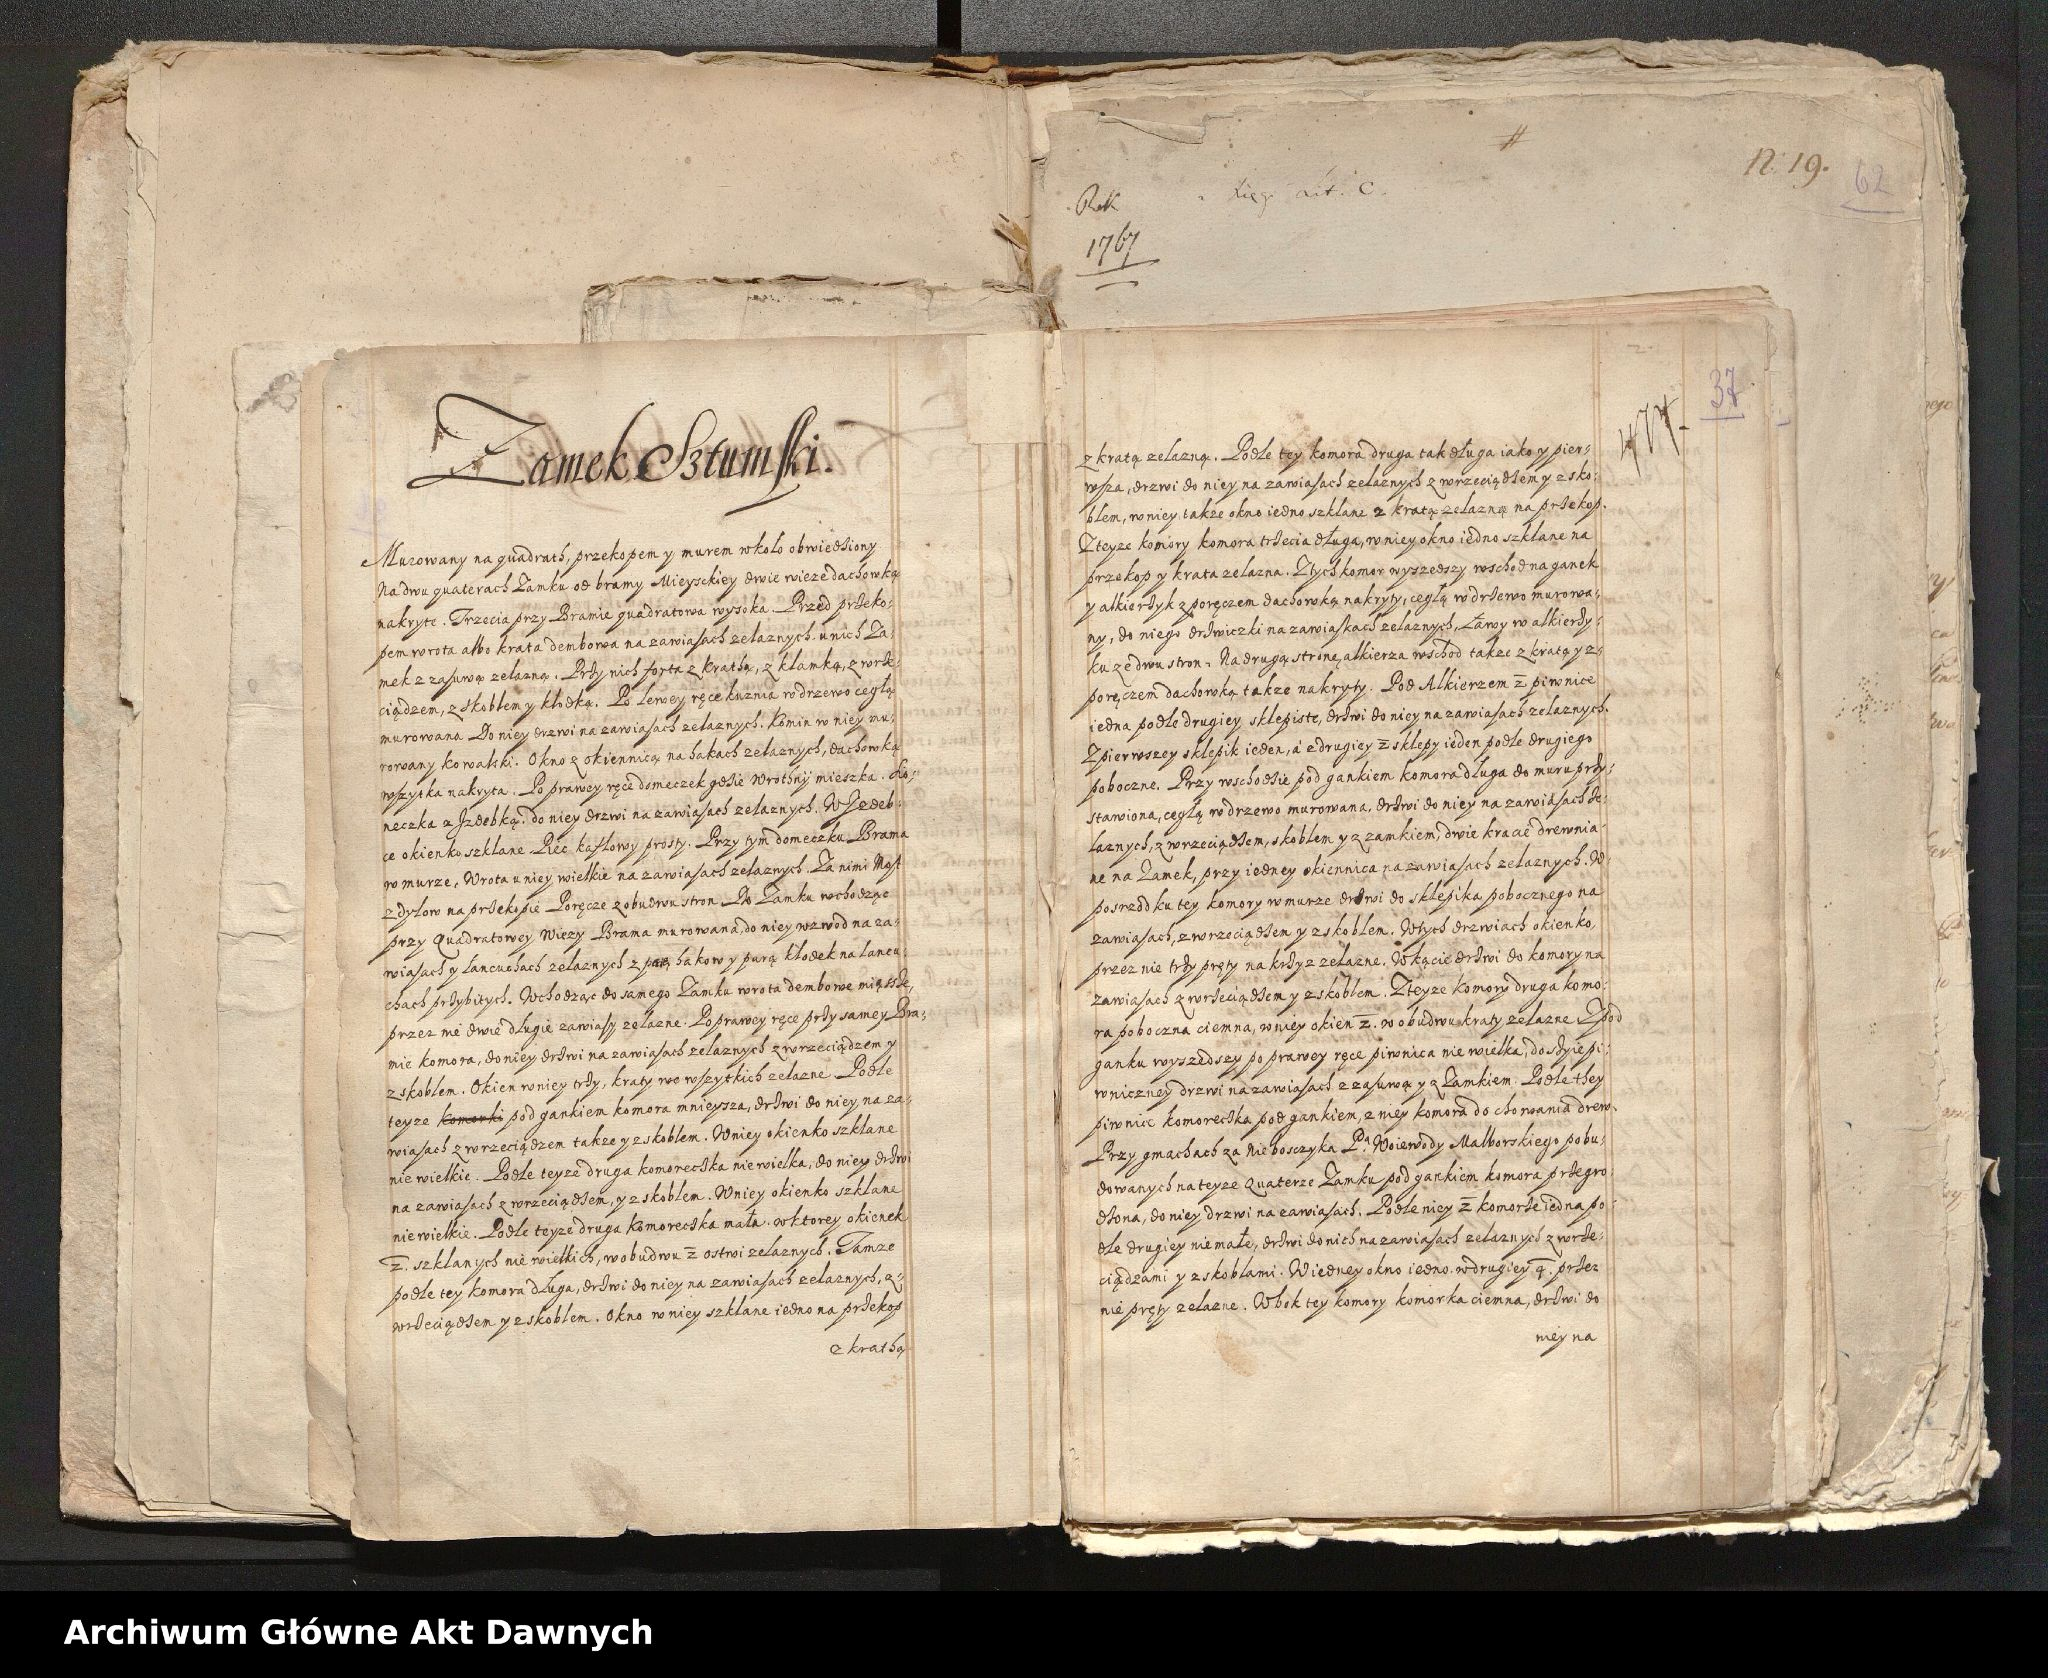 Zamek Sztumski.
Murowany na quadrath, przekopem y murem wkoło obwiedziony
Na dwu quaterach Zamku od bramy Mieysckiey dwie wieze dachowką
nakryte. Trzecia przy Bramie quadratowa wysoka. Przed przeko-
pem wrota albo krata dembowa na zawiasach zelaznych. u nich Za-
mek z zasuwą zelazną. Przy nich forta z krathą, z klamką, z wrze-
ciądzem, z skoblem y kłodką. Po lewey ręce kuznia w drzewo cegłą
murowana Do niey drzwi na zawiasach zelaznych. Komin w niey mu-
rowany kowalski. Okno z okiennicą na hakach zelaznych, dachowką
wszytka nakryta. Po prawey ręce domeczek gdzie wrothny mieszka.
neczka z Jzdebką. do niey drzwi na zawiasach zelaznych. W Jzdeb-
ce okienko szklane Piec kaflowy prosty. Przy tym domeczku Brama
w murze, Wrota u niey wielkie na zawiasach zelaznych. Za nimi Most
z dylow na przekopie Poręcze z obudwu stron Do Zamku wchodząc
przy Quadratowey Wiezy Brama murowana, do niey wzwod na za-
wiasach y łancuchach zelaznych z parą hakow y parą kłodek na łancu-
chach przybitych. Wchodząc do samego Zamku wrota dembowe miąsze,
przez nie dwie długie zawiasy zelazne. Po prawey ręce przy samey Bra-
mie komora, do niey drzwi na zawiasach zelaznych z wrzeciądzem y
z skoblem. Okien w niey trzy, kraty we wszytkich zelazne Podle
teyze komorki pod gankiem komora mnieysza, drzwi do niey na za-
wiasach z wrzeciądzem takze y z skoblem. W niey okienko szklane
nie wielkie. Podle teyze druga komoreczka nie wielka, do niey drzwi
na zawiasach z wrzeciądzem, y z skoblem. W niey okienko szklane
nie wielkie. Podle teyze druga komoreczka mała. w ktorey okienek
2. szklanych nie wielkich, w obudwu 2 ostwi zelaznych. Tamze
podle tey komora długa, drzwi do niey na zawiasach zelaznych, z
wrzeciądzem y z skoblem. Okno w niey szklane iedno na przekop
z krathą
Rok
1767
Lit. C.
N. 19.
62
37
477.
z kratą zelazną. Podle tey komora druga tak długa iako y pier-
wsza, drzwi do niey na zawiasach zelaznych z wrzeciądzem y z sko-
blem, w niey takze okno iedno szklane z kratą zelazną na przekop.
Z teyze komory komora trzecia długa, w niey okno iedno szklane na
przekop y krata zelazna. Z tych komor wyszedszy wschod na ganek
y alkierzyk z poręczem dachowką nakryty, cegłą w drzewo murowa-
ny, do niego drzwiczki na zawiaskach zelaznych, Ławy w alkierzy-
ku ze dwu stron. Na drugą stronę alkierza wschod takze z kratą y z
poręczem dachowką takze nakryty. Pod Alkierzem 2 piwnice
iedna podle drugiey sklepiste, drzwi do niey na zawiasach zelaznych.
Z pierwszey sklepik ieden, á z drugiey 2 sklepy ieden podle drugiego
poboczne. Przy wschodzie pod gankiem komora długa do muru przy-
stawiona, cegłą w drzewo murowana, drzwi do niey na zawiasach ze-
laznych, z wrzeciądzem, skoblem y z zamkiem, dwie kracie drewnia-
ne na Zamek, przy iedney okiennica na zawiasach zelaznych. W
posrzodku tey komory w murze drzwi do sklepika pobocznego na
zawiasach, z wrzeciądzem y z skoblem. W tych drzwiach okienko,
przez nie trzy pręty na krzyz zelazne. W kącie drzwi do komory na
zawiasach z wrzeciądzem y z skoblem. Z teyze komory druga komo-
ra poboczna ciemna, w niey okien 2. w obudwu kraty zelazne Z pod
ganku wyszedszy po prawey ręce piwnica nie wielka, do szyie pi-
wniczney drzwi na zawiasach z zasuwą y z Zamkiem. Podle they
piwnice komoreczka pod gankiem, z niey komora do chowania drew.
Przy gmachach za Nieboszczyka Pa Woiewody Malborskiego pobu-
dowanych na teyze quaterze Zamku pod gankiem komora przegro-
dzona, do niey drzwi na zawiasach. Podle niey 2 komorze iedna po-
dle drugiey niemałe, drzwi do nich na zawiasach zelaznych z wrze-
ciądzami y z skoblami. W iedney okno iedno. w drugiey 4. przez
nie pręty zelazne. W bok tey komory komorka ciemna, drzwi do
niey na
Archiwum Główne Akt Dawnych